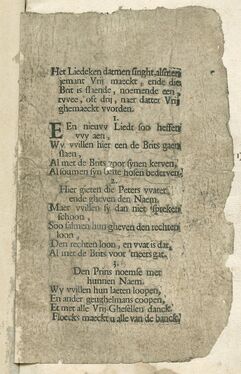 Het Liedeken datmen singht, alsmen
iemant Vrij maeckt, ende die
Bot is slaende, noemende een,
tvvee, oft drij, naer datter Vrij
ghemaeckt vvorden.
1.
EEn nieuvv Liedt soo heffen
vvy aen,
Wy vvillen hier een de Brits gaen
slaen,
Al met de Brits voor synen kerven,
Al soumen syn beste hosen bederven.
2.
Hier gieten die Peters vvater
ende gheven den Naem.
Maer vvillen sy dan niet spreken
schoon
Soo salmen hun gheven den rechten
loon,
Den rechten loon, en vvat is dat,
Al met de Brits voor 'meers gat.
3.
Den Prins noemse met
hunnen Naem.
Wy vvillen hun laeten loopen,
En ander geughelmans coopen,
Et met alle Vrij-Ghesellen danck
Floecks maeckt u alle van de banck.